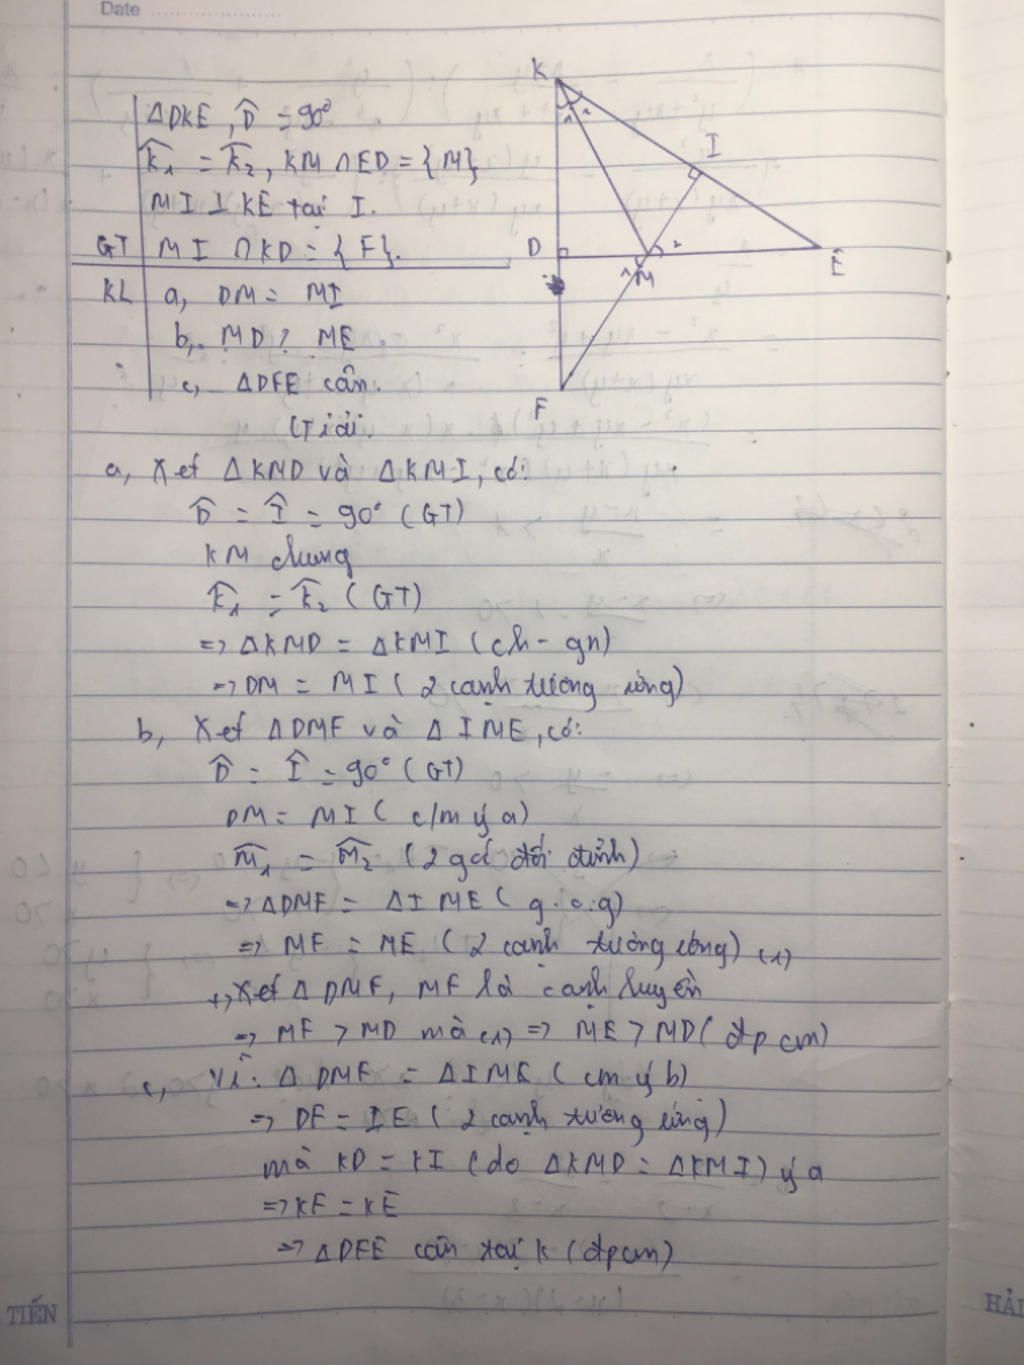 Date
K
1 2
ΔDKE, D̂ = 90°
I
K̂₁ = K̂₂, KM ∩ ED = {M}
MI ⊥ KE tại I.
GT MI ∩ KD = {F}.
D
2
1 M
E
KL a, DM = MI
b, MD ? ME
c, ΔDFE cân.
F
Giải.
a, Xét ΔKMD và ΔKMI, có:
D̂ = Î = 90° (GT)
KM chung
K̂₁ = K̂₂ (GT)
=> ΔKMD = ΔKMI (ch - gn)
=> DM = MI (2 cạnh tương ứng)
b, Xét ΔDMF và ΔIME, có:
D̂ = Î = 90° (GT)
DM = MI (c/m ý a)
M̂₁ = M̂₂ (2 góc đối đỉnh)
=> ΔDMF = ΔIME (g.c.g)
=> MF = ME (2 cạnh tương ứng) (1)
+, Xét ΔDMF, MF là cạnh huyền
=> MF > MD mà (1) => ME > MD (đpcm)
c, Vì: ΔDMF = ΔIME (cm ý b)
=> DF = IE (2 cạnh tương ứng)
mà KD = KI (do ΔKMD = ΔKMI) ý a
=> KF = KE
=> ΔDFE cân tại K (đpcm)
TIẾN
HẢI